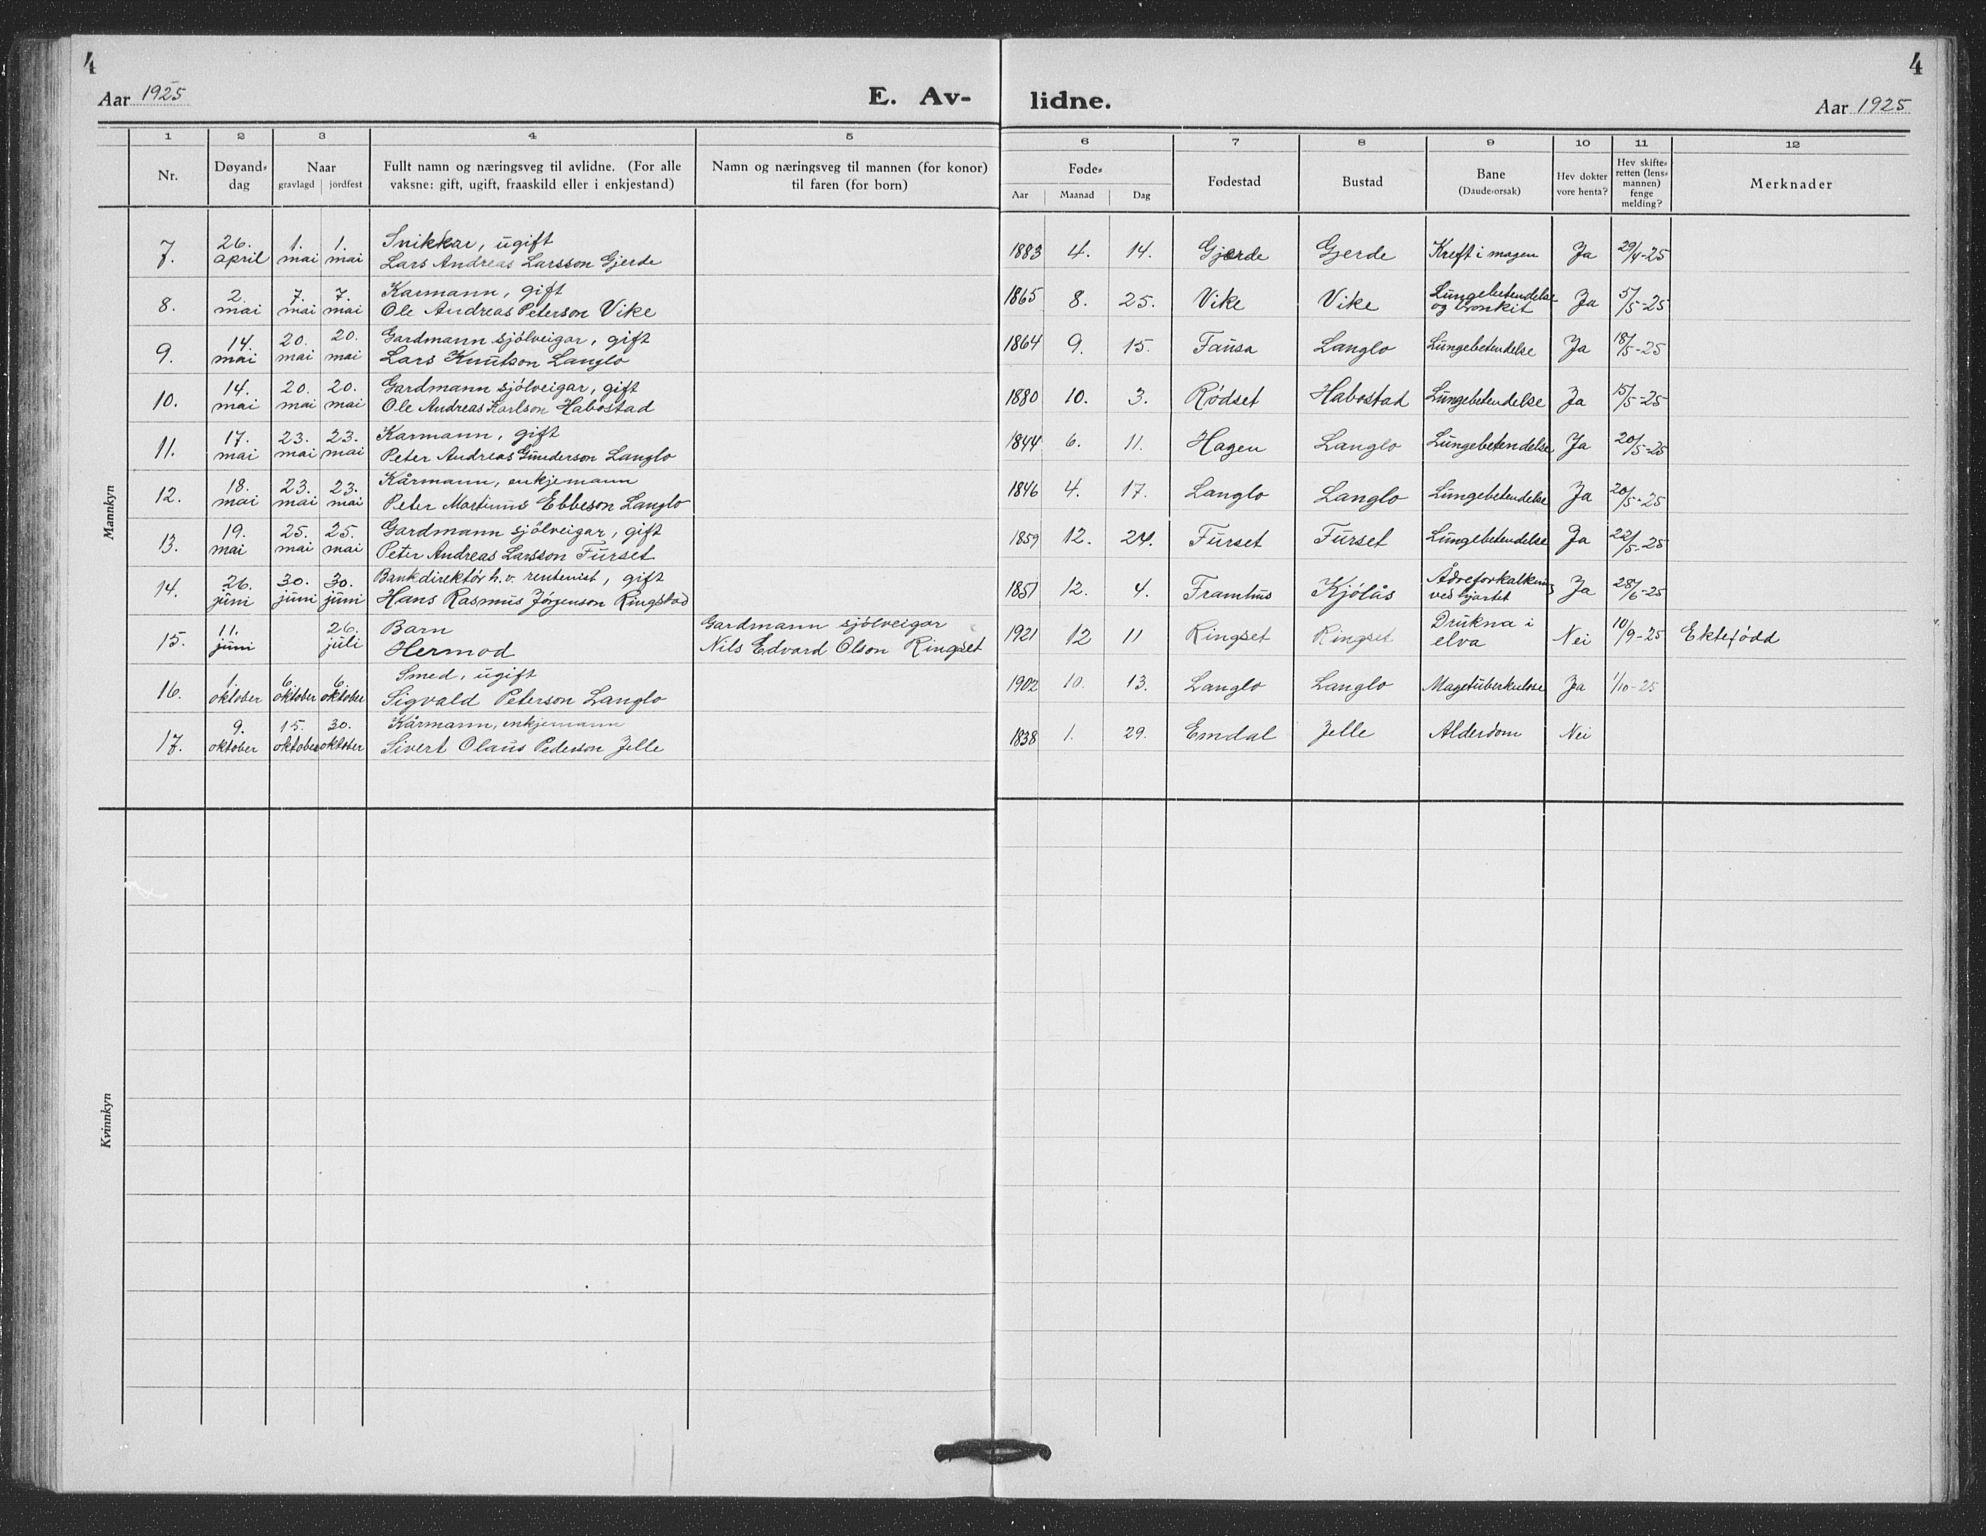 4
4
Aar 1925
E. Av-
lidne.
Aar 1925
1 2 3 4 5 6 7 8 9 10 11 12
Nr.
Døyand-
dag
Naar
gravlagd jordfest
Fullt namn og næringsveg til avlidne. (For alle
vaksne: gift, ugift, fraaskild eller i enkjestand)
Namn og næringsveg til mannen (for konor)
til faren (for born)
Føde-
Aar Maanad Dag
Fødestad
Bustad
Bane
(Daude-orsak)
Hev dokter
vore henta?
Hev skifte-
retten (lens-
mannen)
fenge
melding?
Merknader
Mannkyn
7. 26. april 1. mai 1. mai Snikkar, ugift
Lars Andreas Larsson Gjerde 1883 4. 14. Gjerde Gjerde Kreft i magen Ja 29/4-25
8. 2. mai 7. mai 7. mai Karmann, gift
Ole Andreas Peterson Vike 1865 8. 25. Vike Vike Lungebetendelse
og bronkit Ja 5/5-25
9. 14. mai 20. mai 20. mai Gardmann sjölveigar, gift
Lars Knutson Langlo 1864 9. 15. Fausa Langlo Lungebetendelse Ja 18/5-25
10. 14. mai 20. mai 20. mai Gardmann sjölveigar, gift
Ole Andreas Karlson Habostad 1880 10. 3. Rödset Habostad Lungebetendelse Ja 15/5-25
11. 17. mai 23. mai 23. mai Karmann, gift
Peter Andreas Gunderson Langlo 1844 6. 11. Hagen Langlo Lungebetendelse Ja 20/5-25
12. 18. mai 23. mai 23. mai Kårmann, enkjemann
Peter Martinus Ebbeson Langlo 1846 4. 17. Langlo Langlo Lungebetendelse Ja 20/5-25
13. 19. mai 25. mai 25. mai Gardmann sjölveigar, gift
Peter Andreas Larsson Furset 1859 12. 24. Furset Furset Lungebetendelse Ja 22/5-25
14. 26. juni 30. juni 30. juni Bankdirektör h.v. rentenist, gift
Hans Rasmus Jörgenson Ringstad 1851 12. 4. Framhus Kjölås Ådreforkalkning
ved hjartet Ja 28/6-25
15. 11. juni 26. juli Barn
Hermod Gardmann sjölveigar
Nils Edvard Olson Ringset 1921 12 11 Ringset Ringset Drukna i
elva Nei 10/9-25 Ektefödd
16. 1. oktober 6. oktober 6. oktober Smed, ugift
Sigvald Peterson Langlo 1902 10. 13. Langlo Langlo Magetuberkulose Ja 1/10-25
17. 9. oktober 15. oktober 30. oktober Kårmann, enkjemann
Sivert Olaus Pederson Jelle 1838 1. 29. Emdal Jelle Alderdom Nei
Kvinnkyn